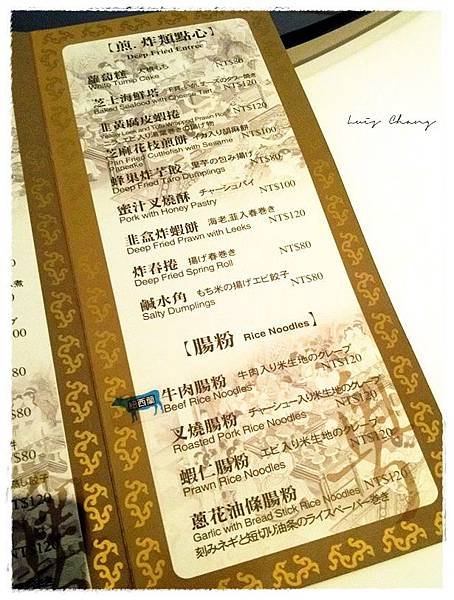 【煎．炸類點心】
Deep Fried Entree
蘿蔔糕 大根もち NT$80
White Turnip Cake
芝士海鮮塔 NT$120
Baked Seafood with Cheese Tart
韭黃腐皮蝦捲 NT$120
Yellow Leek and Tofu Wrapped Prawn Roll
芝麻花枝煎餅 イカ入り胡麻餅 NT$100
Pan Fried Cuttlefish with Sesame
Pancake
蜂巢炸芋餃 里芋の包み揚げ NT$80
Deep Fried Taro Dumplings
蜜汁叉燒酥 チャーシューパイ NT$100
Pork with Honey Pastry
韭盒炸蝦餅 海老,韮入春巻き NT$120
Deep Fried Prawn with Leeks
炸春捲 揚げ春巻き NT$80
Deep Fried Spring Roll
鹹水角 もち米の揚げエビ餃子 NT$80
Salty Dumplings
【腸粉 Rice Noodles】
紐西蘭
牛肉腸粉 牛肉入り米生地のクレープ
Beef Rice Noodles NT$120
叉燒腸粉 チャーシュー入り米生地のクレープ
Roasted Pork Rice Noodles NT$120
蝦仁腸粉 エビ入り米生地のクレープ
Prawn Rice Noodles NT$120
蔥花油條腸粉 NT$120
Garlic with Bread Stick Rice Noodles
刻みネギと短切り油条のライスペーパー巻き
Luiz Chang
NT$120
NT$120